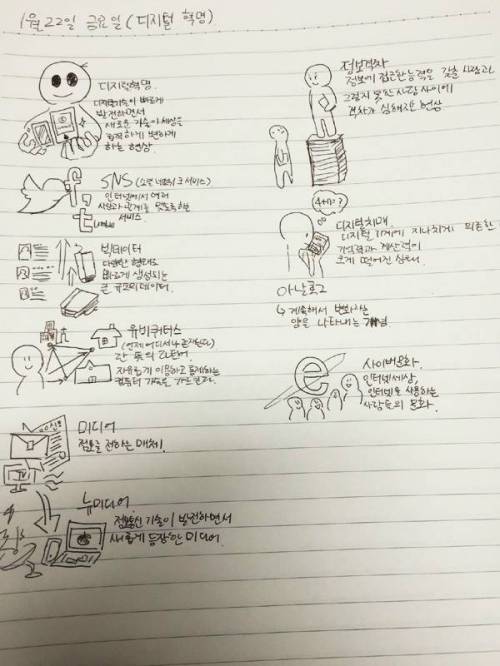 1월 22일 금요일 (디지털 혁명)
디지털혁명.
디지털기술이 빠르게
발전하면서
새로운 기술이 세상을
급격하게 변하게
하는 현상.
SNS (소셜 네트워크 서비스)
인터넷에서 여러
사람과 관계를 맺도록 한
서비스
f
t
빅데이터
다양한 형태로
빠르게 생성되는
큰 규모의 데이터.
유비쿼터스
(언제 어디서나 존재한다)
간 뜻의 라틴어.
자유롭게 이용하고 통제하는
컴퓨터 기술을
미디어
정보를 전하는 매체.
TV
뉴미디어.
정보통신 기술이 발전하면서
새롭게 등장한 미디어.
정보격차
정보에 접근한 능력을 갖춘 사람과
그렇지 못한 사람 사이에
격차가 심해지는 현상
4+11=?
디지털치매
디지털 기계에 지나치게 의존한
기억력과 계산력이
크게 떨어진 상태
아날로그
↳ 계속해서 변화한
양을 나타내는 개념
e
사이버문화.
인터넷세상,
인터넷을 사용하는
사람들의 문화.